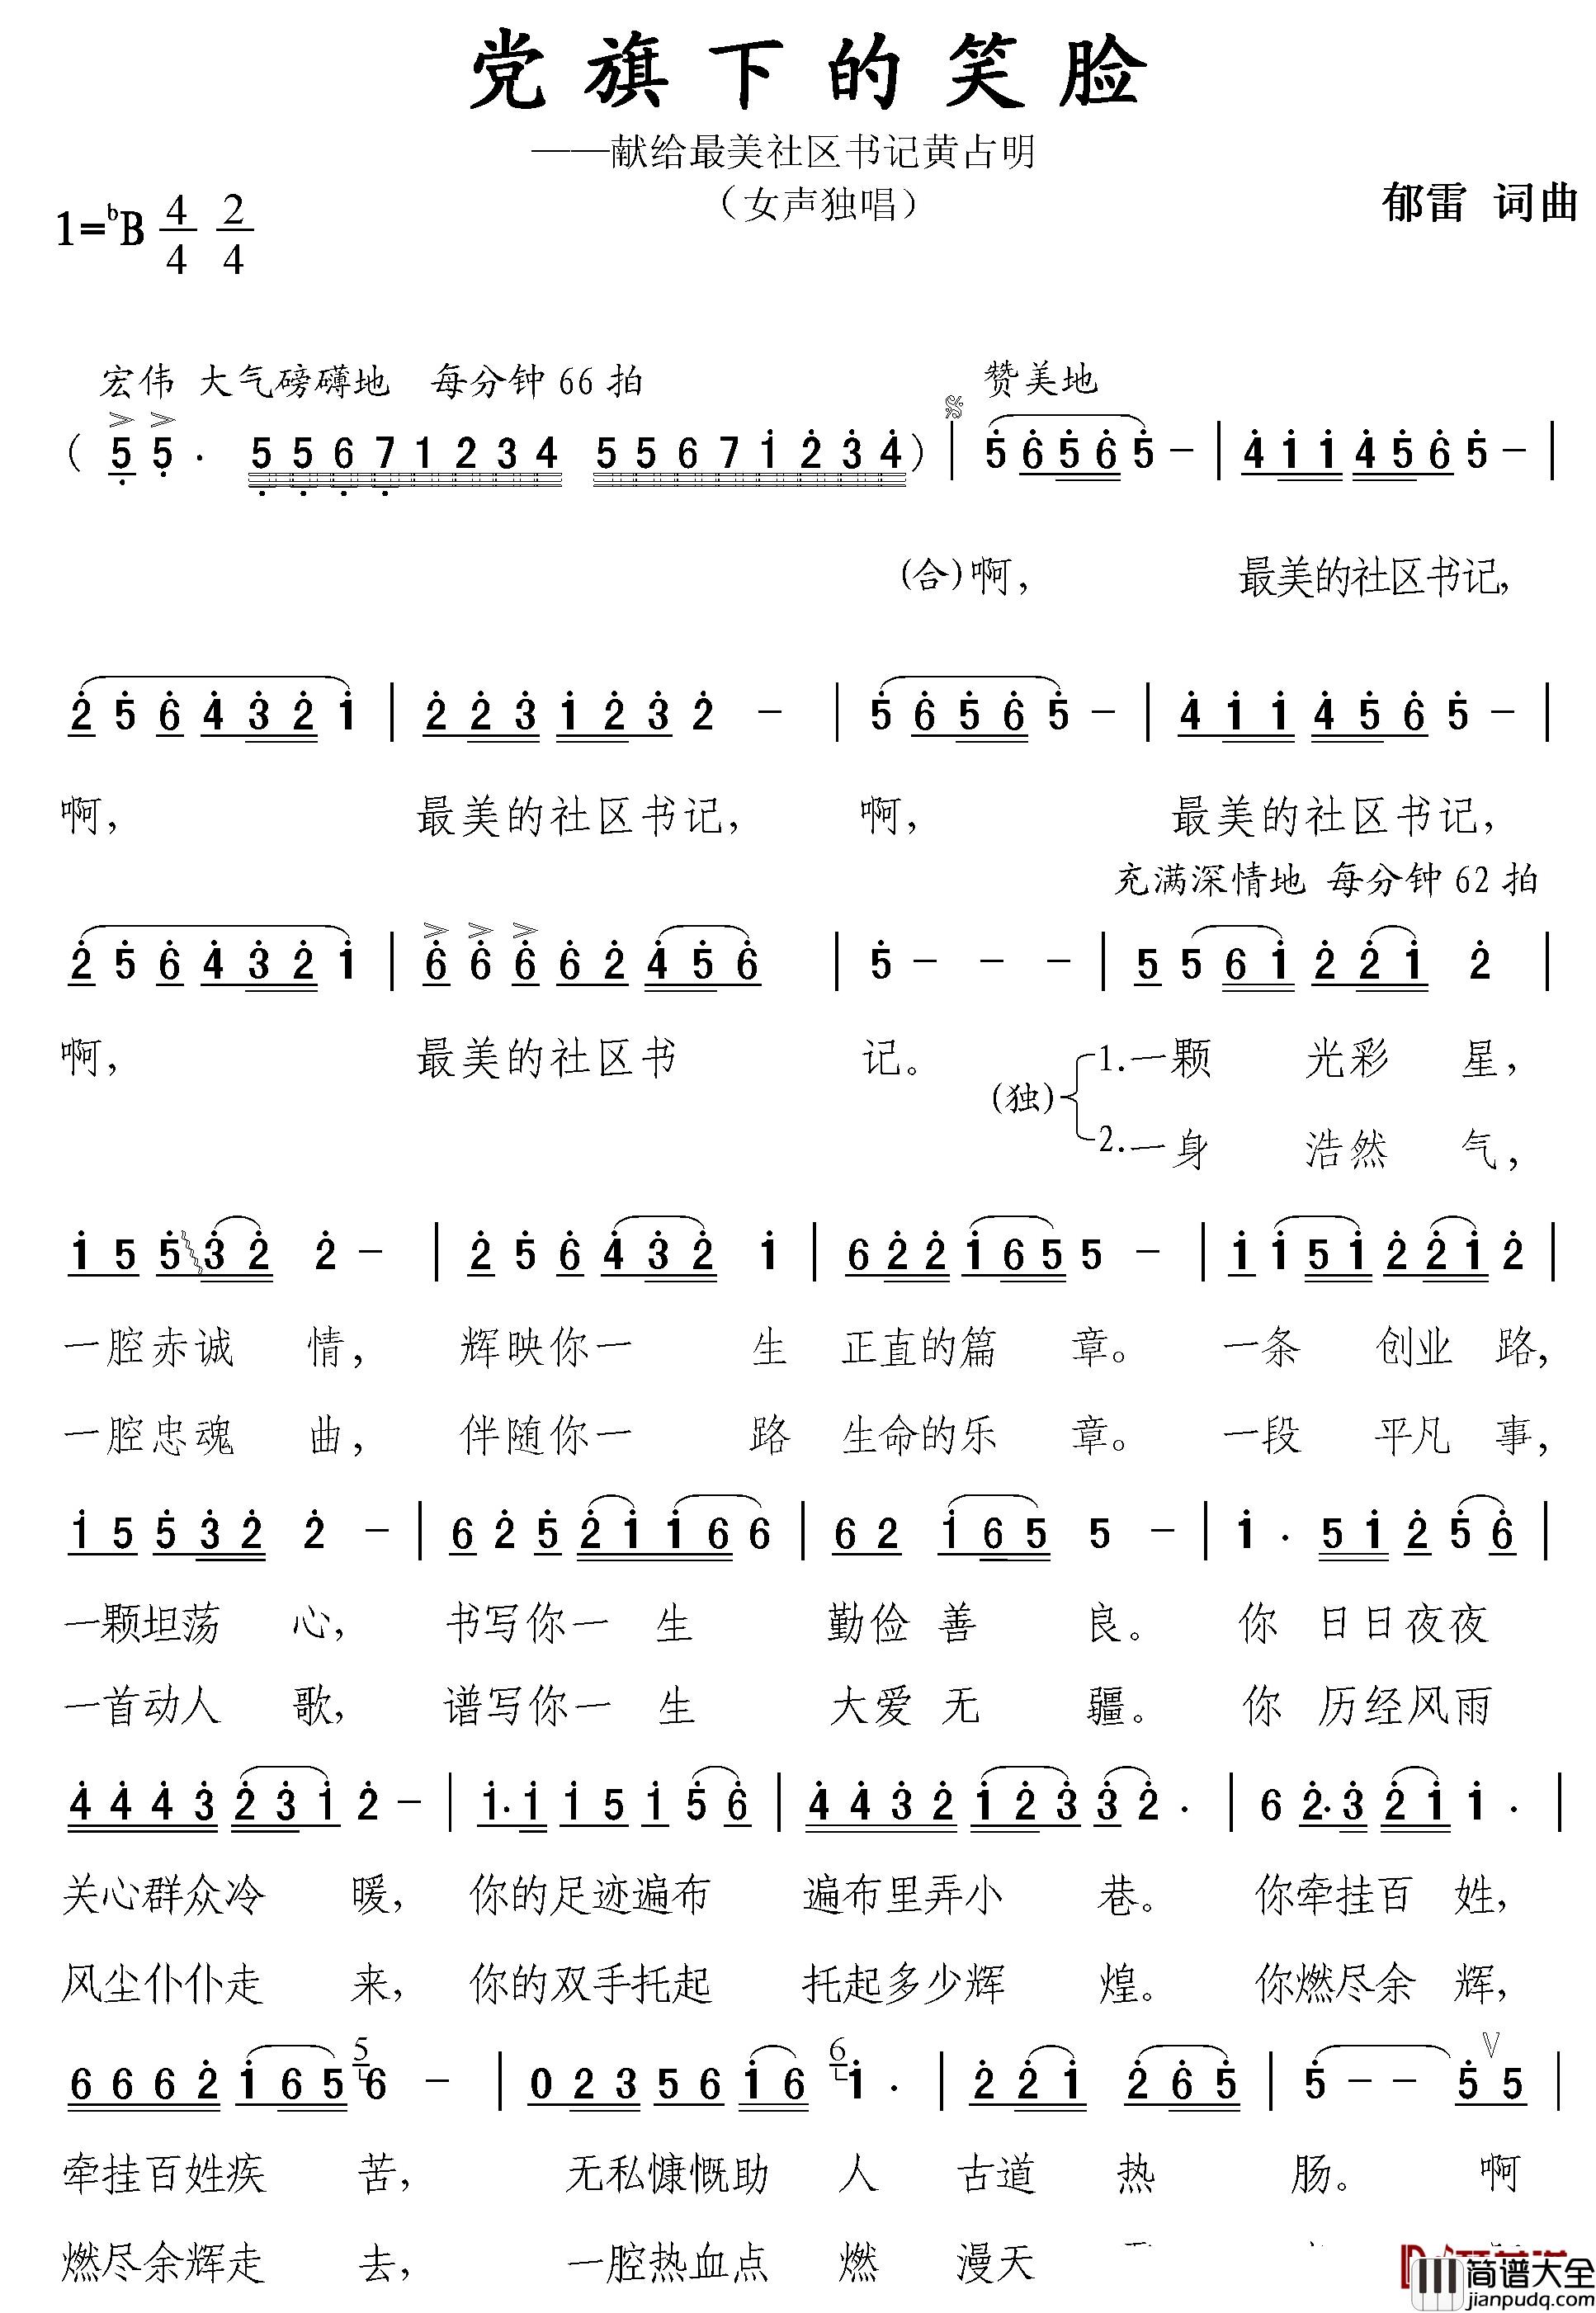 党旗下的笑脸
——献给最美社区书记黄占明
（女声独唱）
郁雷 词曲
1=bB 4/4 2/4
宏伟 大气磅礴地 每分钟66拍 赞美地
( 5 5 · 5 5 6 7 1 2 3 4 5 5 6 7 1 2 3 4 ) | 5 6 5 6 5 – | 4 1 1 4 5 6 5 – |
(合)啊， 最美的社区书记，
2 5 6 4 3 2 1 | 2 2 3 1 2 3 2 – | 5 6 5 6 5 – | 4 1 1 4 5 6 5 – |
啊， 最美的社区书记， 啊， 最美的社区书记，
充满深情地 每分钟62拍
2 5 6 4 3 2 1 | 6 6 6 6 2 4 5 6 | 5 – – – | 5 5 6 1 2 2 1 2 |
啊， 最美的社区书 记。 (独) 1.一颗 光彩 星，
2.一身 浩然 气，
1 5 5 3 2 2 – | 2 5 6 4 3 2 1 | 6 2 2 1 6 5 5 – | 1 1 5 1 2 2 1 2 |
一腔赤诚 情， 辉映你一 生 正直的篇 章。 一条 创业 路，
一腔忠魂 曲， 伴随你一 路 生命的乐 章。 一段 平凡 事，
1 5 5 3 2 2 – | 6 2 5 2 1 1 6 6 | 6 2 1 6 5 5 – | 1 · 5 1 2 5 6 |
一颗坦荡 心， 书写你一 生 勤俭 善 良。 你 日日夜夜
一首动人 歌， 谱写你一 生 大爱 无 疆。 你 历经风雨
4 4 4 3 2 3 1 2 – | 1 · 1 1 5 1 5 6 | 4 4 3 2 1 2 3 3 2 · | 6 2 · 3 2 1 1 · |
关心群众冷 暖， 你的足迹遍布 遍布里弄小 巷。 你牵挂百 姓，
风尘仆仆走 来， 你的双手托起 托起多少辉 煌。 你燃尽余 辉，
6 6 6 2 1 6 5 5 6 – | 0 2 3 5 6 1 6 6 1 · | 2 2 1 2 6 5 | 5 – – 5 5 |
牵挂百姓疾 苦， 无私慷慨助 人 古道 热 肠。 啊
燃尽余辉走 去， 一腔热血点 燃 漫天
简谱大全
jianpudq.com